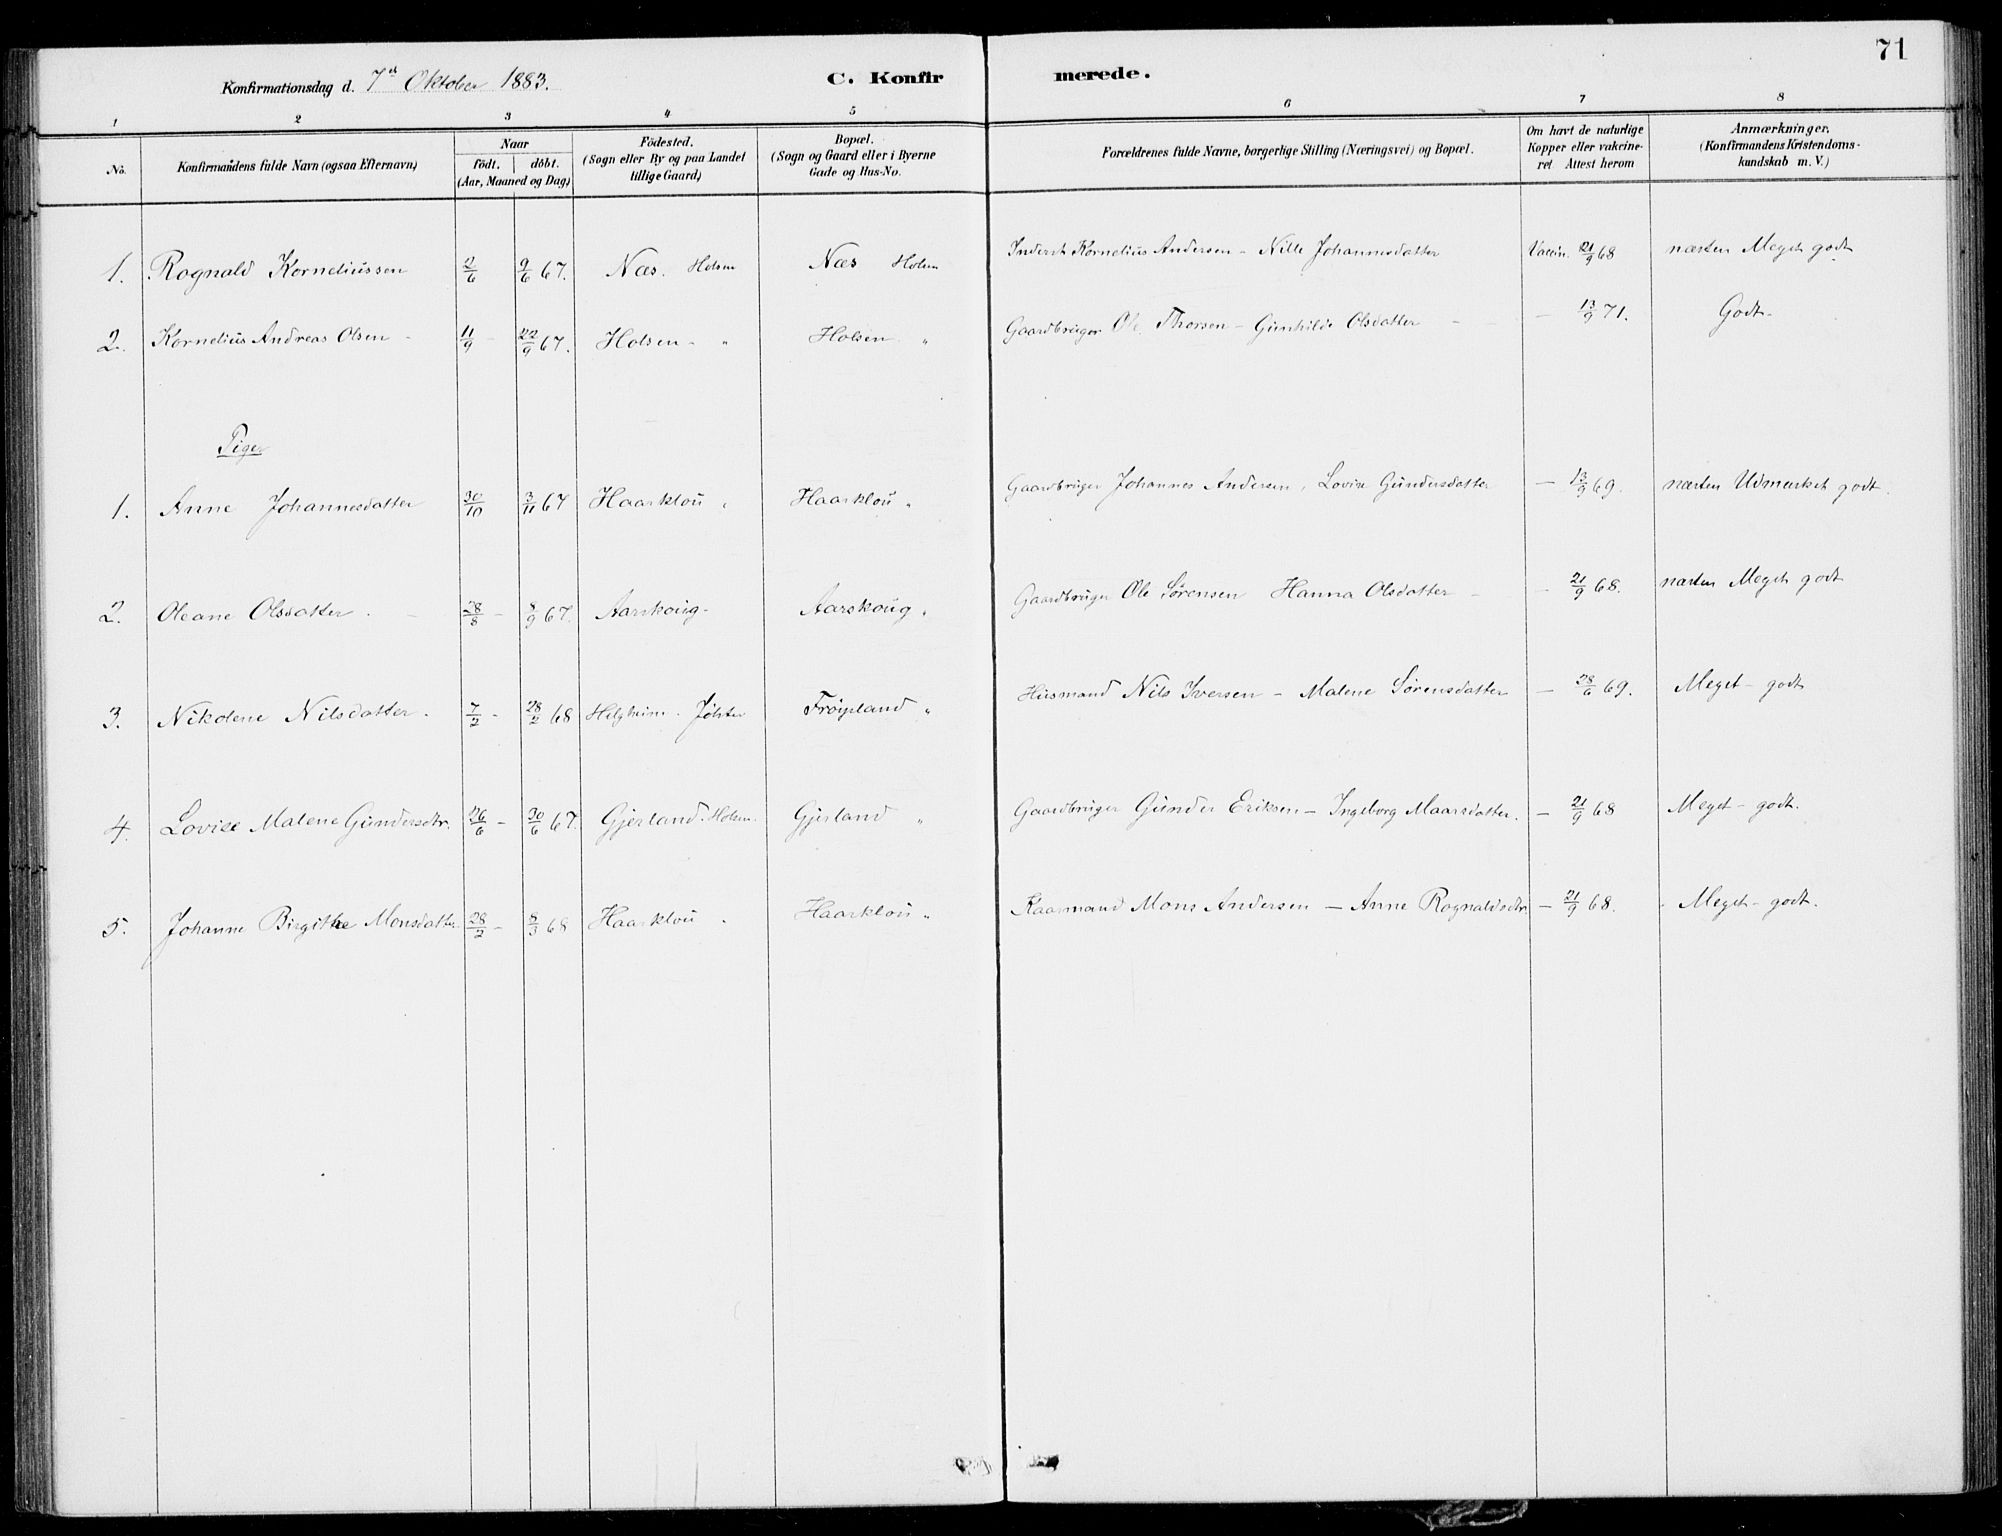 71
Konfirmationsdag d. 7de Oktober 1883.
C. Konfirmerede.
1 2 3 4 5 6 7 8
No.
Konfirmandens fulde Navn (ogsaa Efternavn)
Naar
födt. döbt.
(Aar, Maaned og Dag)
Födested.
(Sogn eller By og paa Landet
tillige Gaard)
Bopæl.
(Sogn og Gaard eller i Byerne
Gade og Hus-No.
Forældrenes fulde Navne, borgerlige Stilling (Næringsvei) og Bopæl.
Om havt de naturlige
Kopper eller vakcine-
ret Attest herom
Anmærkninger.
(Konfirmandens Kristendoms-
kundskab m. V.)
1. Rognald Korneliussen 2/6 9/6 67. Næs. Holsen Næs Holsen Inderst Kornelius Andersen - Nille Johannesdatter Vaccin. 21/9 68 næsten Meget godt
2. Kornelius Andreas Olsen - 11/9 - 22/9 67. Holsen - " Holsen " Gaardbruger Ole Thorsen - Gunhilde Olsdatter - - 13/9 71. Godt-
Piger
1. Anne Johannesdatter 30/10 3/11 67 Haarklou " Haarklou " Gaardbruger Johannes Andersen, Lovise Gundersdatter - 13/9 69. næsten Udmærket godt.
2. Oleane Olsdatter. 28/8 - 8/9 67. Aarskoug - Aarskoug " Gaardbruger Ole Sørensen Hanna Olsdatter - - 21/9 68. næsten Meget godt
3. Nikolene Nilsdatter. 7/2 - 28/2 68 Helgheim. Jølster Frøysland " Husmand Nils Iversen - Malene Sørensdatter - 28/6 69. Meget - godt
4. Lovise Malene Gundersdtr. 26/6 - 30/6 67. Gjerland. Holsen. Gjerland " Gaardbruger Gunder Eriksen - Ingeborg Maarsdatter. - 21/9 68 Meget - godt.
5. Johanne Birgithe Monsdatter 28/2 - 8/3 68 Haarklou " Haarklou " Kaarmand Mons Andersen - Anne Rognaldsdtr. - 21/9 68. Meget - godt.